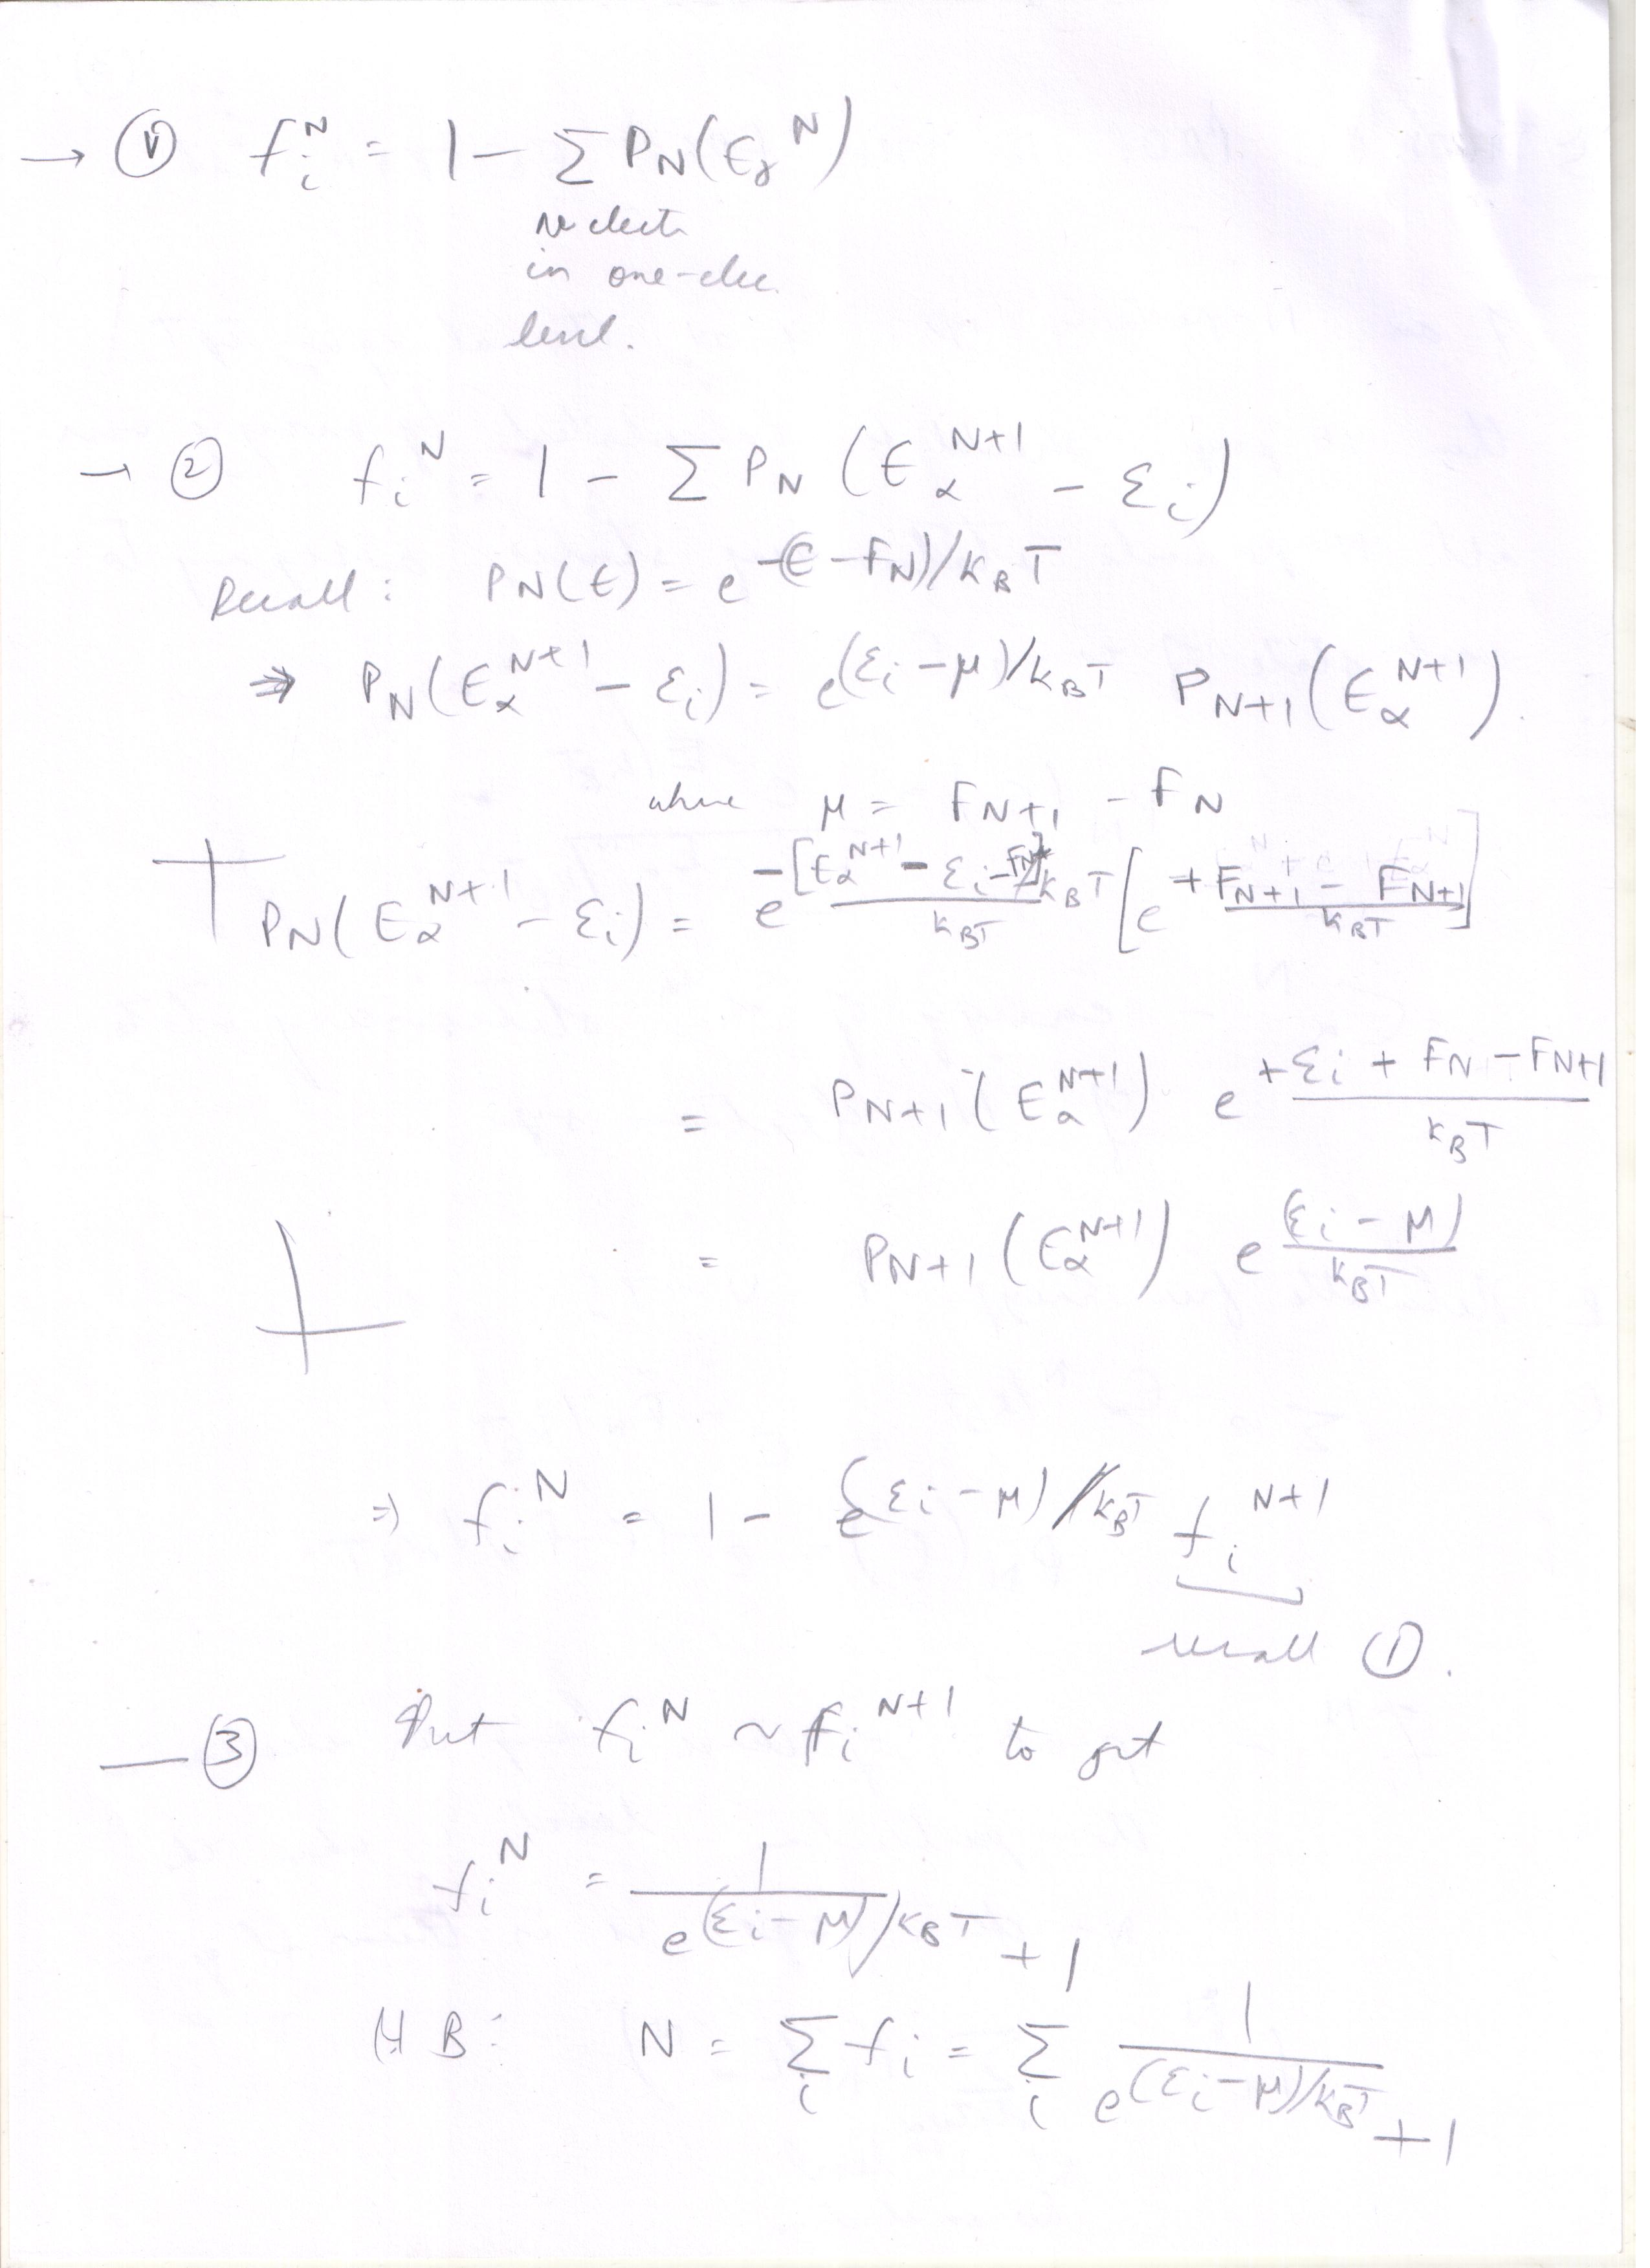 → ① fᵢᴺ = 1 - Σ P_N(E_γ^N)
no electr
in one-elec.
level.
→ ② fᵢᴺ = 1 - Σ P_N (E_α^{N+1} - εᵢ)
Recall: P_N(E) = e^{-(E - F_N)/k_BT}
⇒ P_N(E_α^{N+1} - εᵢ) = e^{(εᵢ - μ)/k_BT} P_{N+1}(E_α^{N+1}).
where μ = F_{N+1} - F_N
P_N(E_α^{N+1} - εᵢ) = e^{-[E_α^{N+1} - εᵢ - F_N]/k_BT} [e^{+F_{N+1} - F_{N+1}/k_BT}]
= P_{N+1}(E_α^{N+1}) e^{+εᵢ + F_N - F_{N+1}/k_BT}
= P_{N+1}(E_α^{N+1}) e^{(εᵢ - μ)/k_BT}
⇒ fᵢᴺ = 1 - e^{(εᵢ - μ)/k_BT} fᵢ^{N+1}
recall ①.
— ③ Put fᵢᴺ ~ fᵢ^{N+1} to get
fᵢᴺ = 1/(e^{(εᵢ - μ)/k_BT} + 1)
B: N = Σᵢ fᵢ = Σᵢ 1/(e^{(εᵢ - μ)/k_BT} + 1)